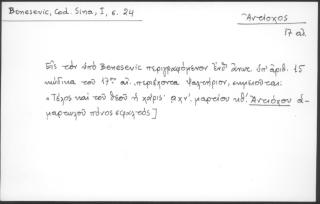 Benesevic, Cod. Sina, I, σ. 24
Ἀντίοχος
17 αἰ.
Εἰς τὸν ὑπὸ Benesevic περιγραφόμενον ἐνθ' ἀνωτ. ὑπ' ἀριθ. 15
κώδικα τοῦ 17ου αἰ. περιέχοντα Ψαλτήριον, σημειοῦται:
«Τέλος καὶ τοῦ Θεοῦ ἡ χάρις· αχν΄. μαρτίου κθ΄. Ἀντιόχου ἁ-
μαρτωλοῦ πόνος